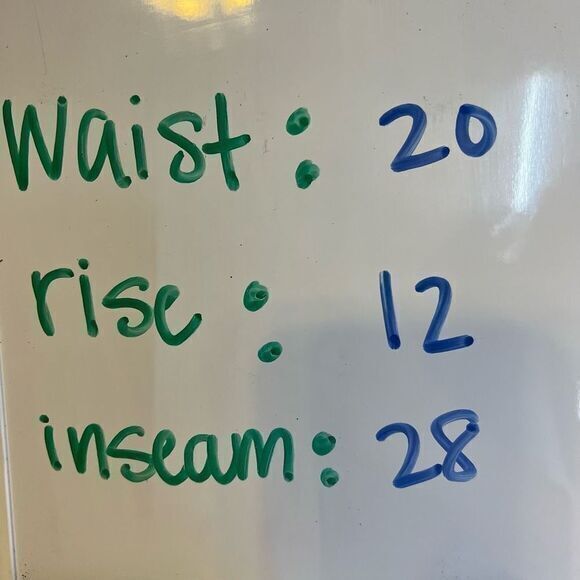 Waist: 20
rise: 12
inseam: 28